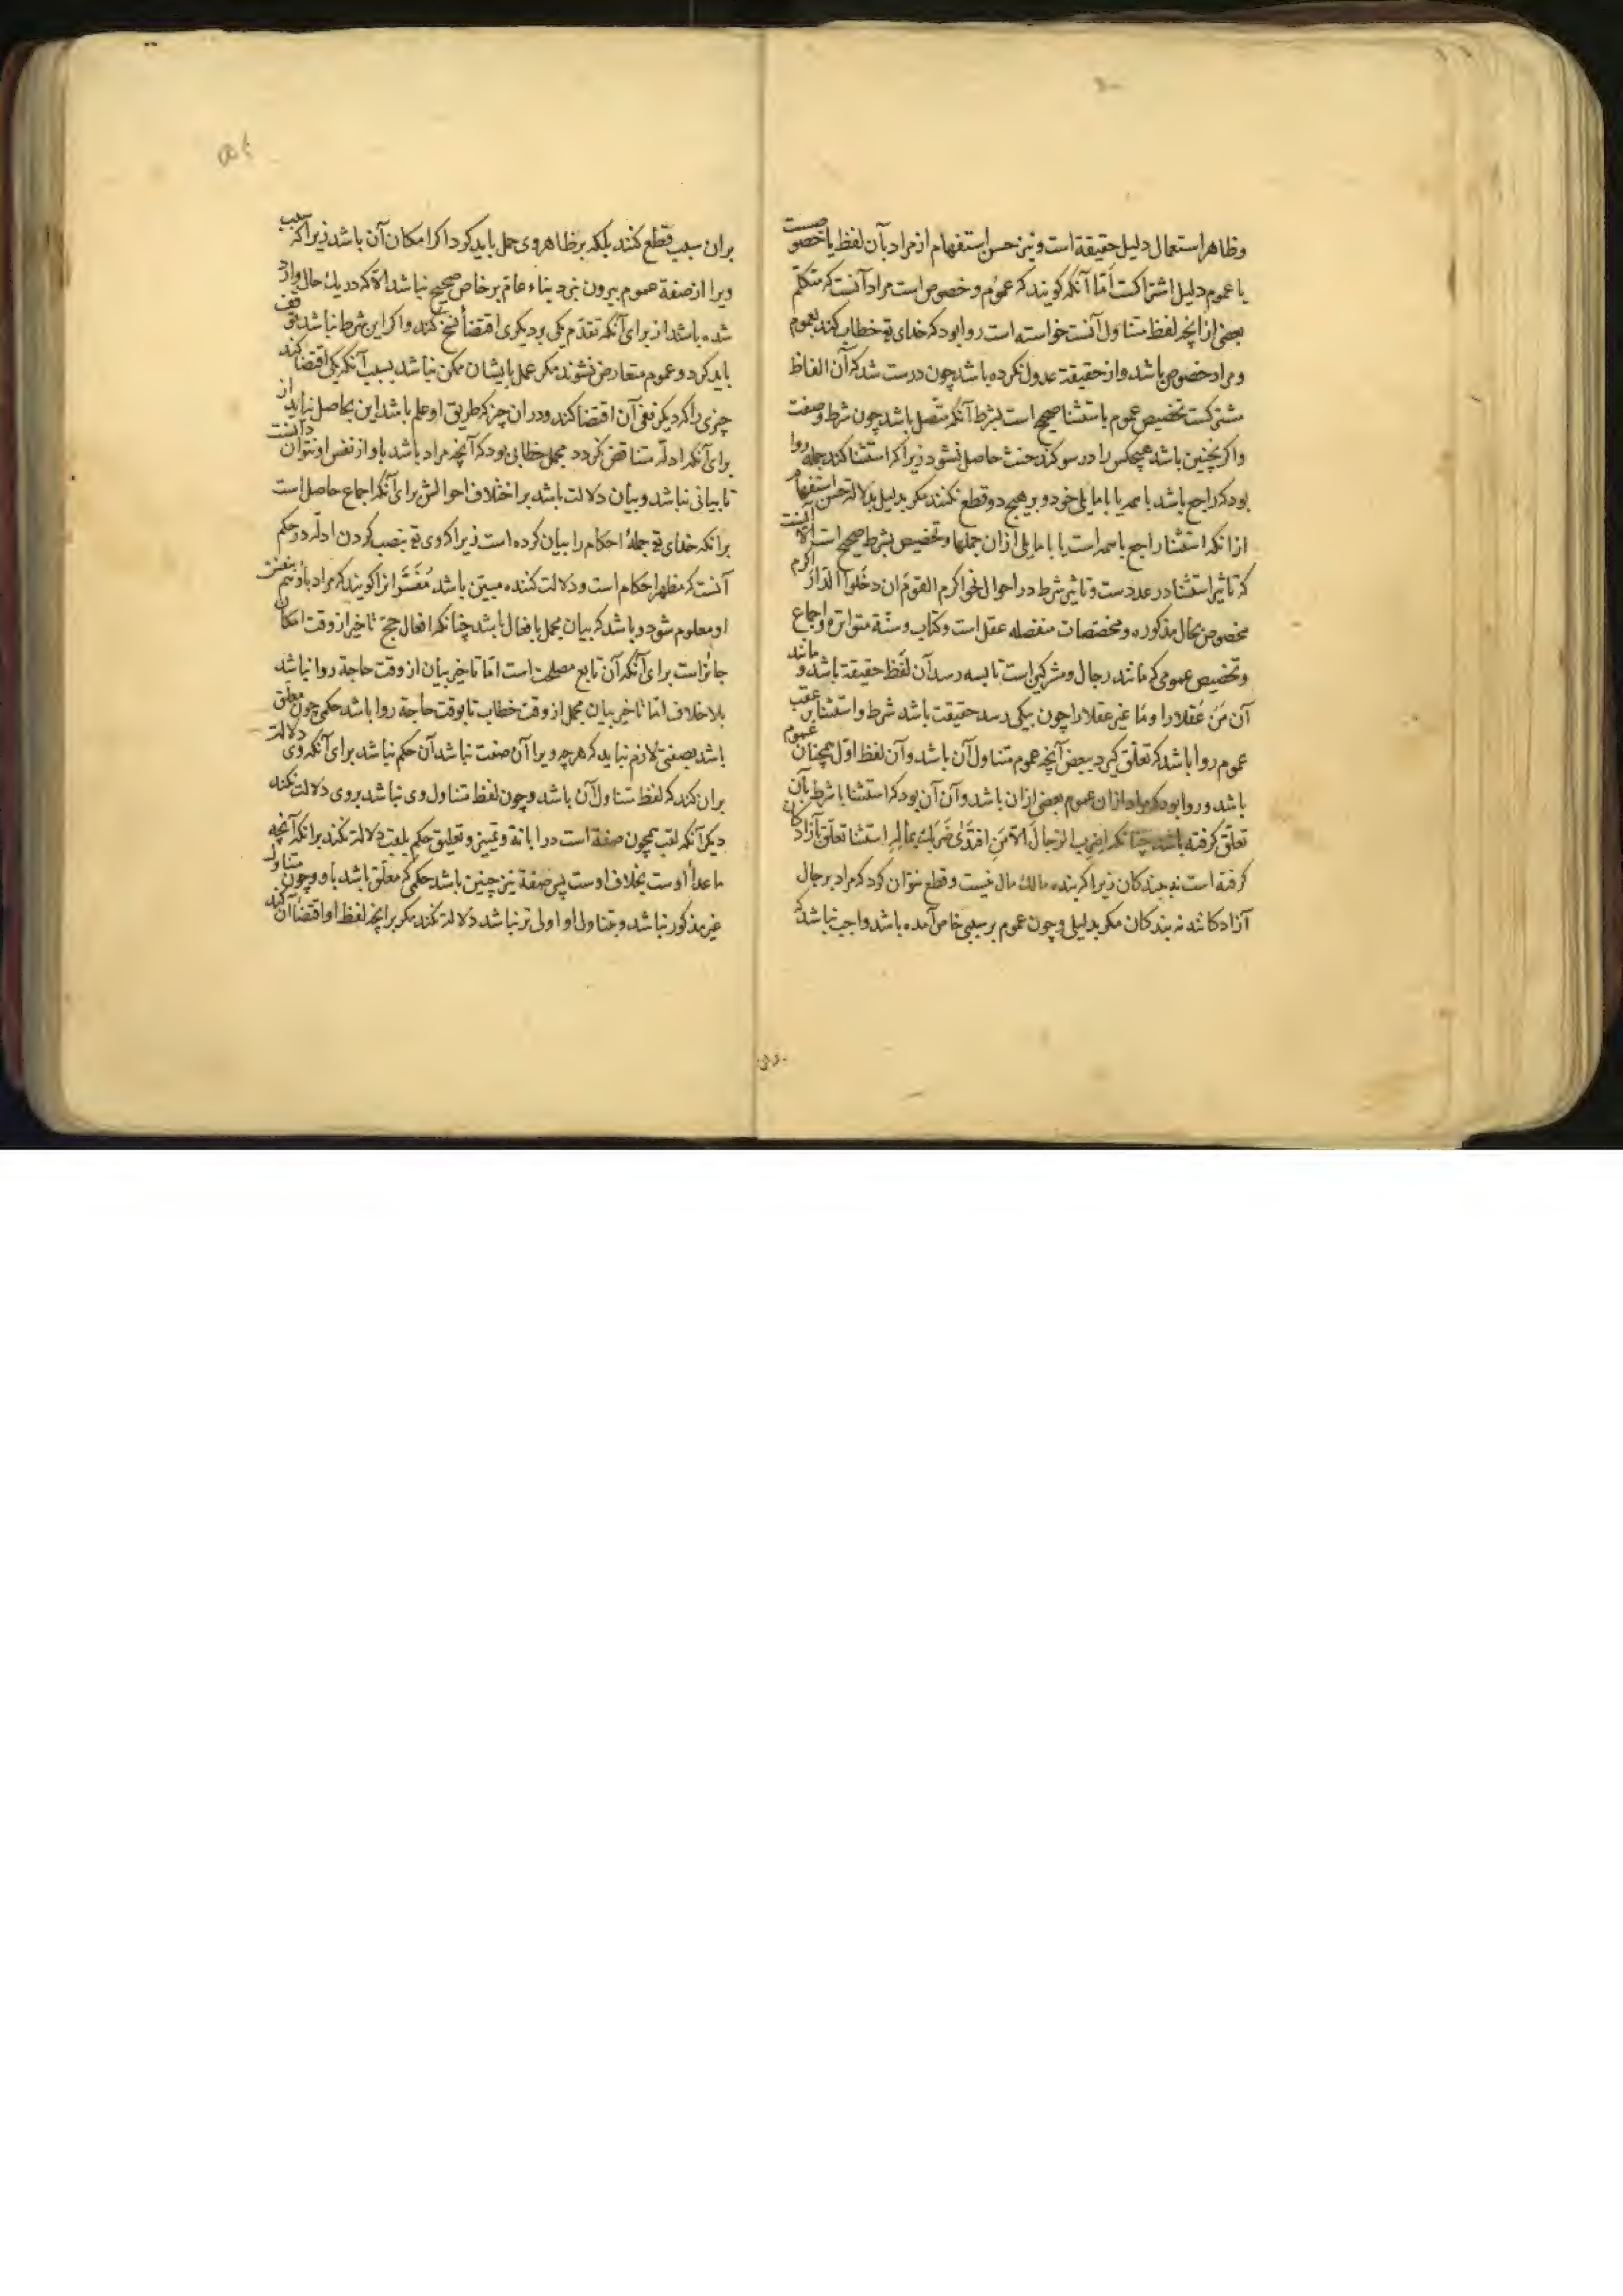 وظاهر استعمال دلیل حقیقة است ونیز حسن استفهام از مراد بآن لفظ یا خصوصست
یا عموم دلیل اشتراکست اما آنکه کویند که عموم وخصوص است مراد آنست که متکلم
بعضی از انچه لفظ متناول آنست خواسته است روا بود که خدای تع خطاب کند بعموم
ومراد خصوص باشد واز حقیقة عدول نکرده باشد چون درست شد که آن الفاظ
مشترکست تخصیص عموم باستثنا صحیح است بشرط آنکه متصل باشد چون شرط وصفت
واکر نچنین باشد هیچکس را در سوکند حنث حاصل نشود زیرا که استثنا کند جمله روا
بود که راجع باشد با همه یا با مایلی خود وبر هیچ دو قطع نکنند مکر بدلیل بدلالة حسن استفهام
از انکه استثنا راجع باهمه است یا با مایلی ازان جملها وتخصیص بشرط صحیح است الا آنست
که تاثیر استثنا در عددست وتاثیر شرط در احوال نحو اکرم القوم ان دخلوا الدار اکرم
مخصوص بحال مذکوره ومخصصات منفصله عقل است وکتاب وسنة متواتره واجماع
وتخصیص عمومی که مانند رجال ومشرکین است تا بسه رسد آن لفظ حقیقة باشد و مانند
آن من عقلا را وما غیر عقلا را چون بیکی رسد حقیقت باشد شرط واستثنا بر عقب
عموم روا باشد که تعلق کیرد ببعض آنچه عموم متناول آن باشد وآن لفظ اول همچنان عموم
باشد وروا بود که مراد ازان عموم بعضی ازان باشد وآن آن بود که استثنا یا شرط بآن
تعلق کرفته باشد چنانکه اضرب الرجال الا من افتدی ضربک بماله استثنا تعلق بآزادکان
کرفته است نه ببندکان زیرا که بنده مالک مال نیست وقطع نتوان کرد که مراد برجال
آزادکانند نه بندکان مکر بدلیلی وچون عموم بر سببی خاص آمده باشد واجب نباشد که
بران سبب قطع کنند بلکه بر ظاهر وی حمل باید کرد اکر امکان آن باشد زیرا که سبب
ویرا از صفة عموم بیرون نبرد بناء عام بر خاص صحیح نباشد الا که در یک حال وارد
شده باشد از برای آنکه تقدم یکی بر دیکری اقتضأ نسخ کند واکر این شرط نباشد توقف
باید کرد دو عموم متعارض نشوند مکر عمل بایشان ممکن نباشد بسبب آنکه یکی اقتضا کند
چیزی را که دیکر نفی آن اقتضا کند ودر ان چیز که طریق او علم باشد این بحاصل نیاید از
برای آنکه ادله متناقض نکردد مجمل خطابی بود که آنچه مراد باشد باو از نفس او نتوان دانست
تا بیانی نباشد وبیان دلالت باشد بر اختلاف احوالش برای آنکه اجماع حاصل است
برانکه خدای تع جملهٔ احکام را بیان کرده است زیرا که وی تع بنصب کردن ادله در حکم
آنست که مظهر احکام است ودلالت کننده مبین باشد مفسر انرا کویند که مراد باو بنفس
او معلوم شود وباشد که بیان مجمل بافعال باشد چنانکه افعال حج تاخیر از وقت امکان
جائز است برای آنکه آن تابع مصلحت است اما تاخیر بیان از وقت حاجة روا نباشد
بلا خلاف اما تاخیر بیان مجمل از وقت خطاب تا بوقت حاجة روا باشد حکمی چون معلق
باشد بصفتی لازم نیاید که هر چه ویرا آن صفت نباشد آن حکم نباشد برای آنکه وی دلالت
بران کند که لفظ متناول آن باشد وچون لفظ متناول وی نباشد بروی دلالت نکند
دیکر آنکه لقب همچون صفة است در ابانة وتمییز وتعلیق حکم بلقب دلالة نکند برانکه آنچه
ماعدا اوست بخلاف اوست پس صفة نیز چنین باشد حکمی که معلق باشد باو وچون متناول
غیر مذکور نباشد وبتناول او اولی تر نباشد دلالت نکند مکر برانچه لفظ او اقتضأ آن کند
بران